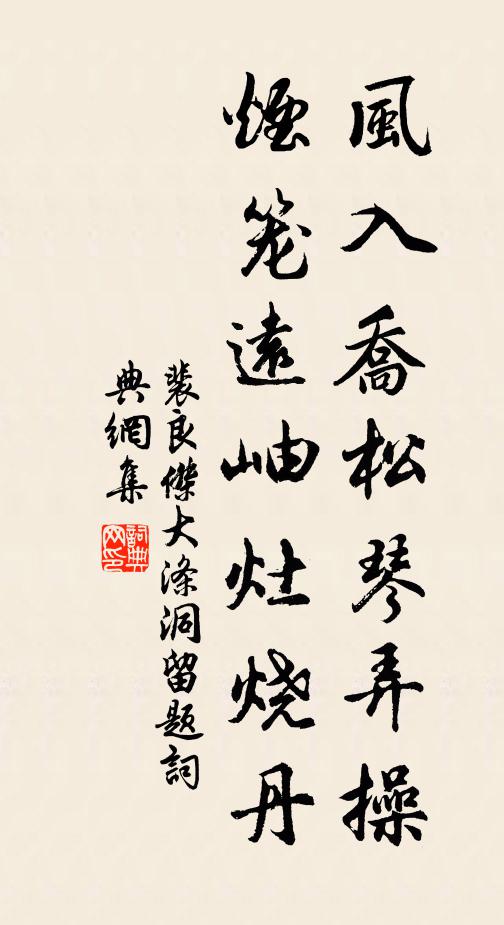 風入喬松琴弄操
煙笼遠岫灶燒丹
裴良傑大滌洞留題詞
典網集
詞典網印